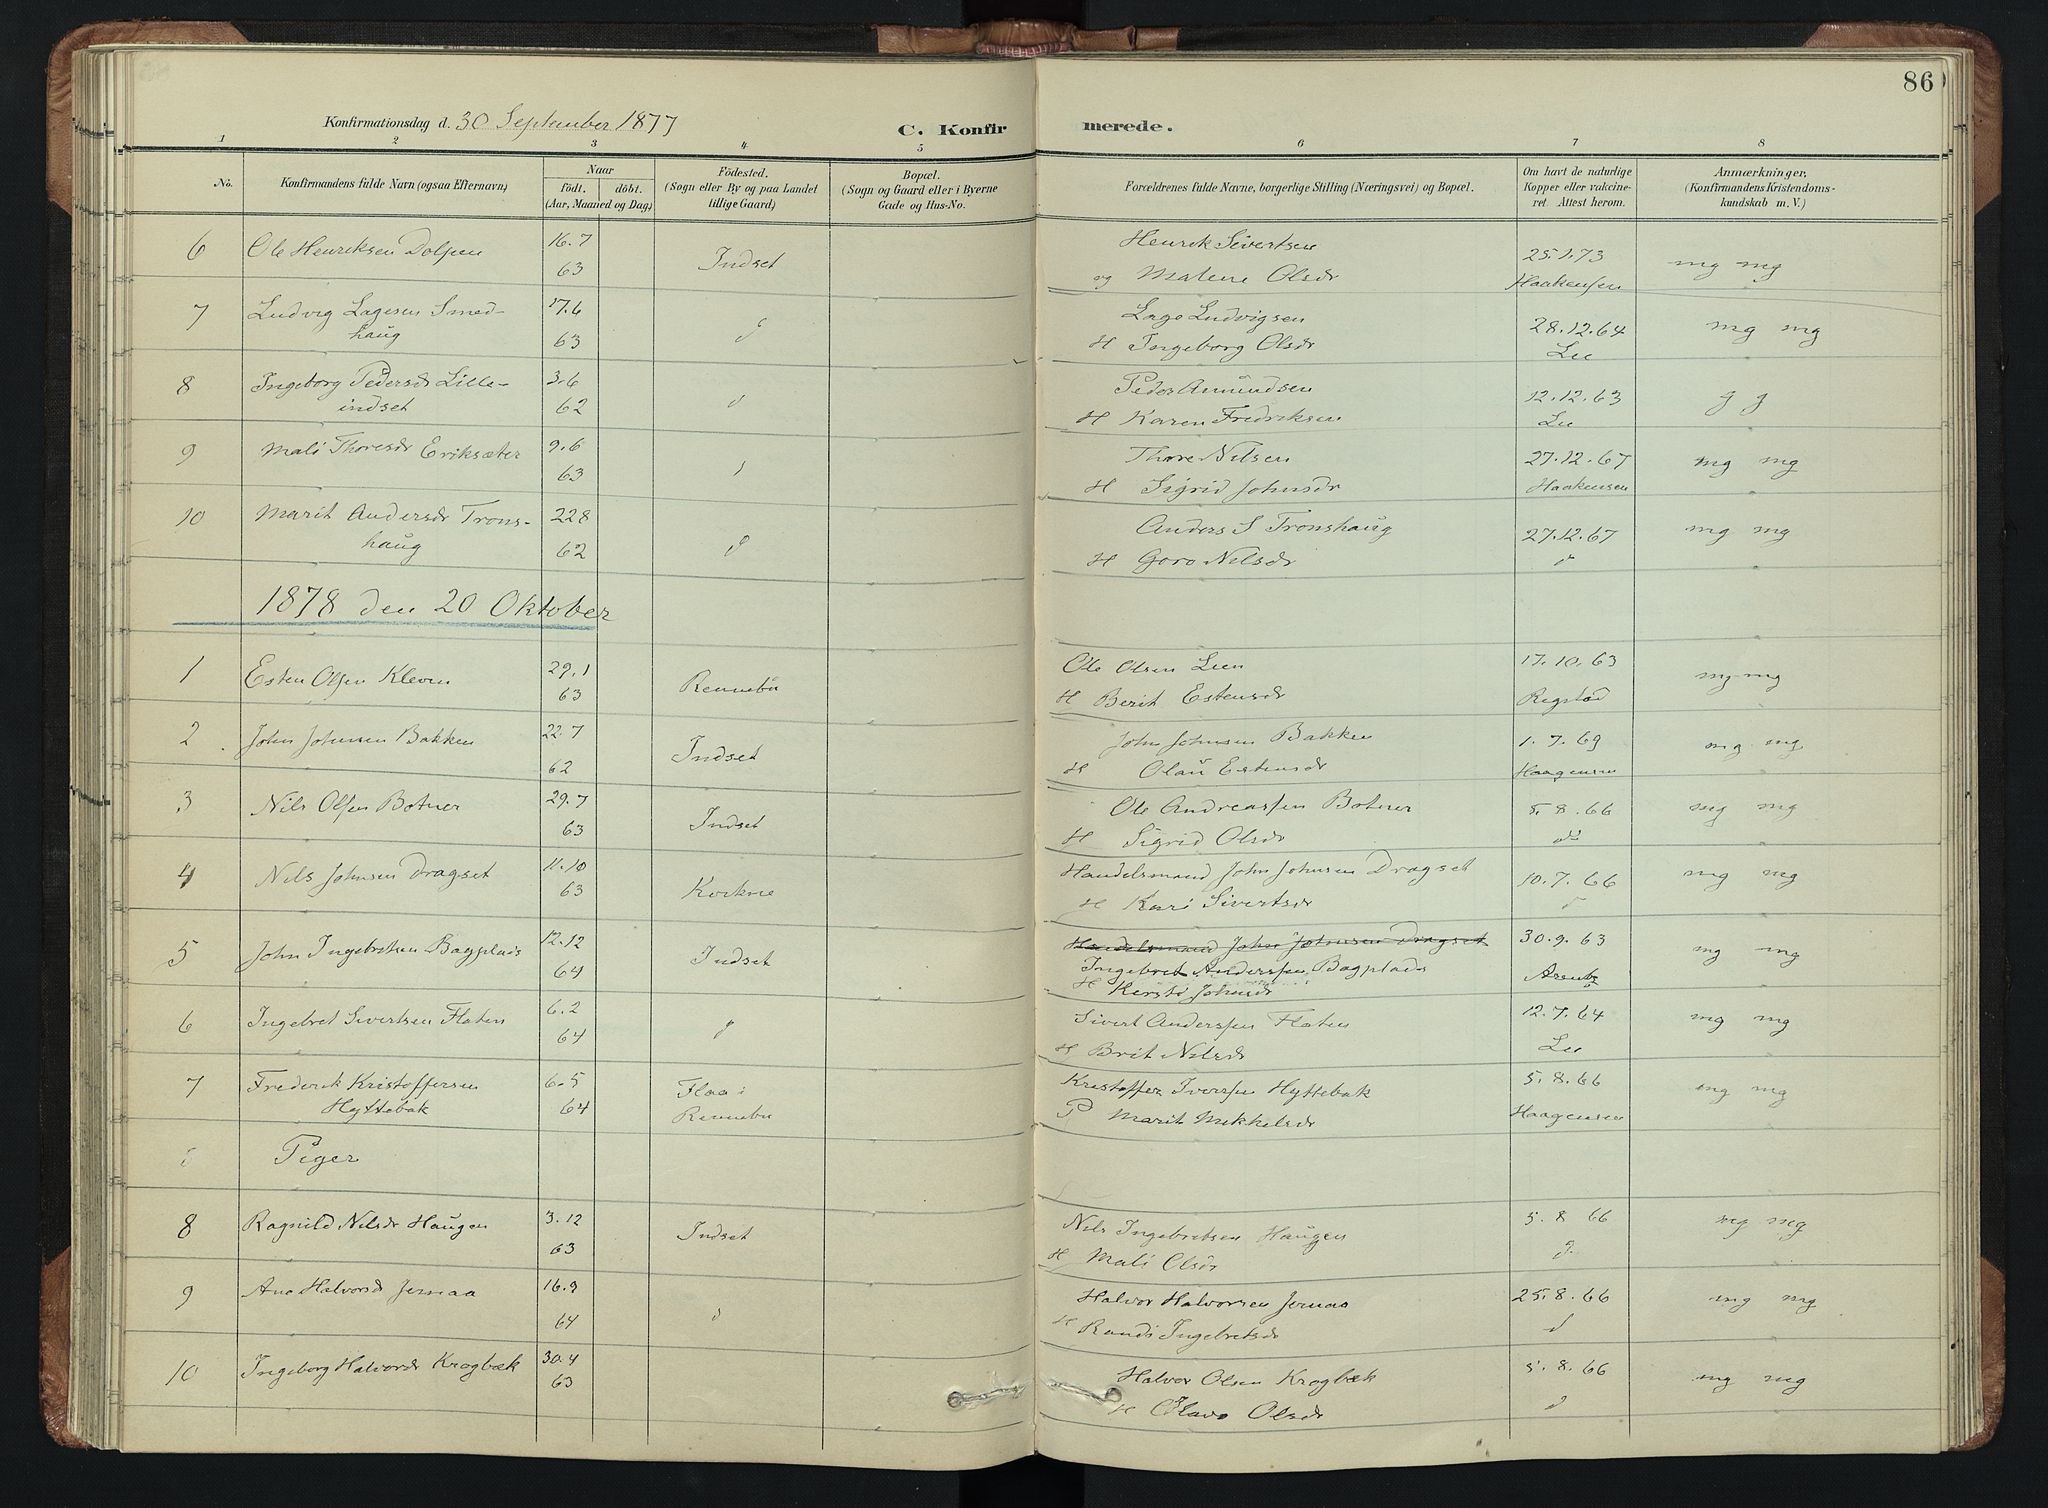 86
Konfirmationsdag d. 30 September 1877
C. Konfirmerede.
1 2 3 4 5 6 7 8
No.
Konfirmandens fulde Navn (ogsaa Efternavn)
Naar
födt. döbt.
(Aar, Maaned og Dag)
Födested.
(Sogn eller By og paa Landet
tillige Gaard)
Bopæl.
(Sogn og Gaard eller i Byerne
Gade og Hus-No.
Forældrenes fulde Navne, borgerlige Stilling (Næringsvei) og Bopæl.
Om havt de naturlige
Kopper eller vakcine-
ret. Attest herom.
Anmærkninger,
(Konfirmandens Kristendoms-
kundskab m. V.)
6 Ole Henriksen Dolpen 16.7 Indset Henrik Sivertsen 25.1.73 mg mg
63 og Malene Olsdr Haakensen
7 Ludvig Lagesen Smed- 17.6 d Lage Ludvigsen 28.12.64 mg mg
haug 63 H Ingeborg Olsdr Lie
8 Ingeborg Pedersdr Lille- 3.6 d Peder Amundsen 12.12.63 g g
indset 62 H Karen Fredriksen Lie
9 Mali Thoresdr Eriksæter 9.6 Thore Nilsen 27.12.67 mg mg
63 H Sigrid Johnsdr Haakensen
10 Marit Andersdr Trons- 22 8 d Anders S Tronshaug 27.12.67 mg mg
haug 62 H Goro Nilsdr d
1878 den 20 Oktober
1 Esten Olsen Kleven 29.1 Rennebu Ole Olsen Leen 17.10.63 mg mg
63 H Berit Estensdr Rogstad
2 John Johnsen Bakken 22.7 Indset John Johnsen Bakken 1.7.69 mg mg
62 H Olau Estensdr Haagensen
3 Nils Olsen Botner 29.7 Indset Ole Andreassen Botner 5.8.66 mg mg
63 H Sigrid Olsdr do
4 Nils Johnsen Dragset 11.10 Kvikne Handelsmand John Johnsen Dragset 10.7.66 mg mg
63 H Kari Sivertsdr d
5 John Ingebretsen Bagplads 12.12 Indset Handelsmand John Johnsen Dragset 30.9.63 mg mg
64 Ingebret Anderssen Bagplads Arentz
H Kersti Johnsdr
6 Ingebret Sivertsen Flaten 6.2 d Sivert Anderssen Flaten 12.7.64 mg mg
64 H Brit Nilsdr Lie
7 Frederik Kristoffersen 6.5 Flaa i Kristoffer Iversen Hyttebak 5.8.66 mg mg
Hyttebak 64 Rennebu P Marit Mikkelsdr Haagensen
Piger
8 Ragnild Nilsdr Haugen 3.12 Indset Nils Ingebretsen Haugen 5.8 66 mg mg
63 H Mali Olsdr d
9 Ane Halvorsd Jernaa 16.9 d Halvor Halvorsen Jernaa 25.8.66 mg mg
64 H Randi Ingebretsdr d
10 Ingeborg Halvorsdr Krogbæk 30.4 Halvor Olsen Krogbæk 5.8.66 mg mg
63 H Olava Olsdr d